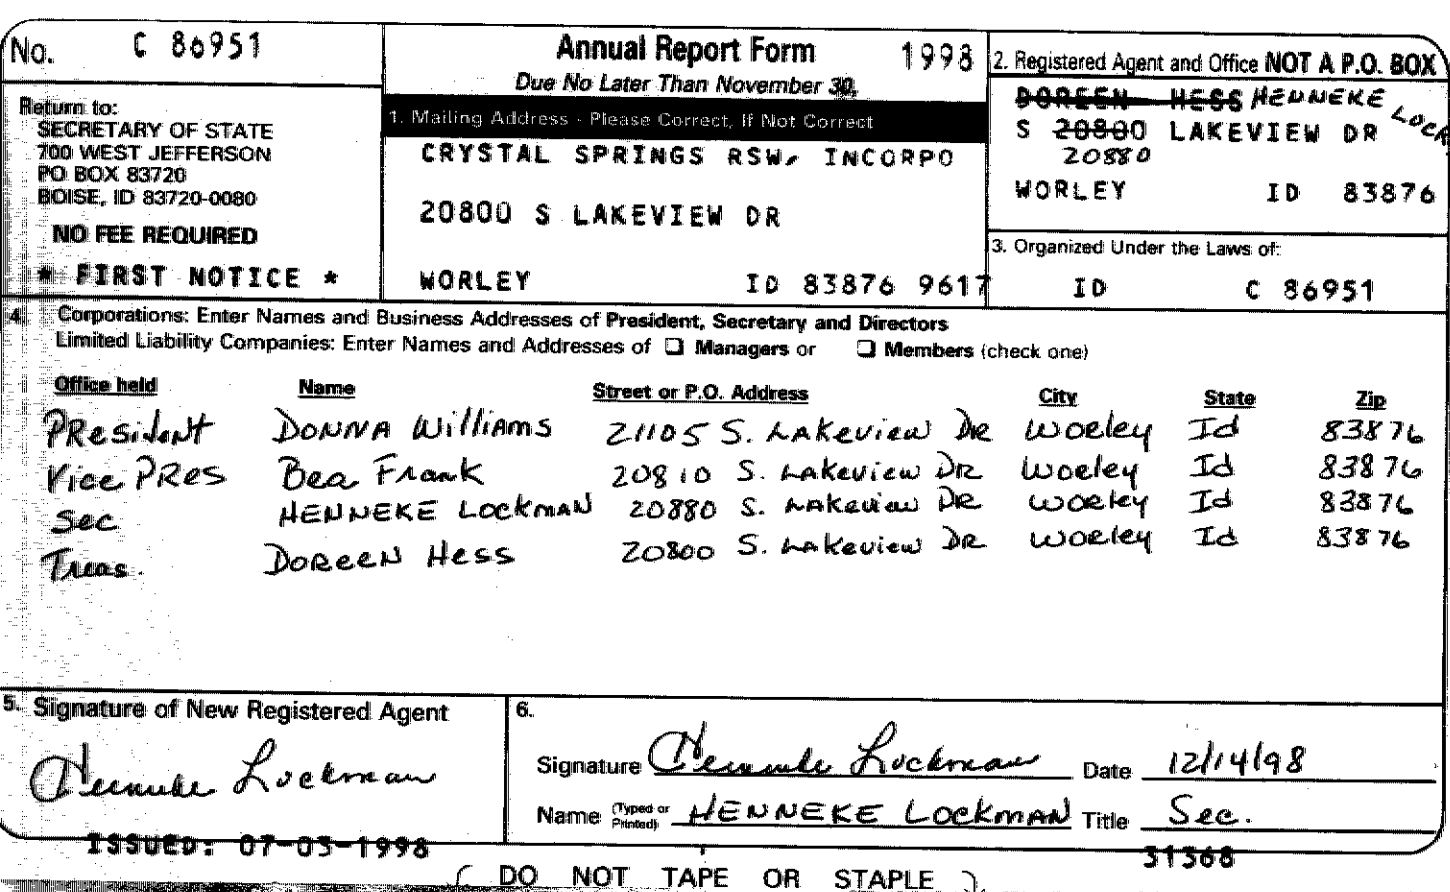 No. C 86951
Return to:
SECRETARY OF STATE
700 WEST JEFFERSON
PO BOX 83720
BOISE, ID 83720-0080
NO FEE REQUIRED
* FIRST NOTICE *
Annual Report Form 1998
Due No Later Than November 30.
1. Mailing Address - Please Correct, If Not Correct
CRYSTAL SPRINGS RSW, INCORPO
20800 S LAKEVIEW DR
WORLEY ID 83876 9617
2. Registered Agent and Office NOT A P.O. BOX
DOREEN HESS HENNEKE LOCK
S 20800 LAKEVIEW DR
20880
WORLEY ID 83876
3. Organized Under the Laws of:
ID C 86951
4. Corporations: Enter Names and Business Addresses of President, Secretary and Directors
Limited Liability Companies: Enter Names and Addresses of ❏ Managers or ❏ Members (check one)
Office held Name Street or P.O. Address City State Zip
PResident DONNA Williams 21105 S. Lakeview DR Worley Id 83876
Vice PRes Bea Frank 20810 S. Lakeview DR Worley Id 83876
Sec HENNEKE LockmAN 20880 S. Lakeview DR Worley Id 83876
Treas. DOREEN Hess 20800 S. Lakeview DR Worley Id 83876
5. Signature of New Registered Agent
Henneke Lockman
6.
Signature Henneke Lockman Date 12/14/98
Name (Typed or Printed) HENNEKE LOCKMAN Title Sec.
ISSUED: 07-03-1998
31368
( DO NOT TAPE OR STAPLE )